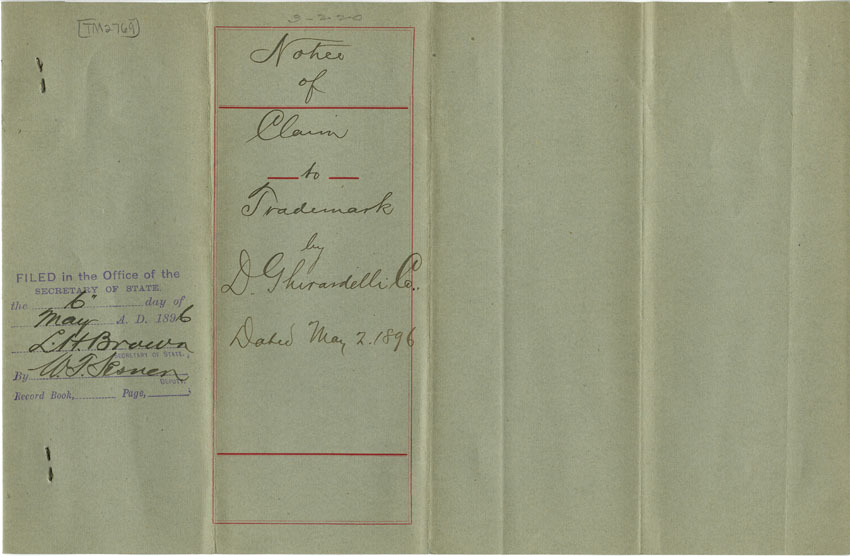 [TM2769]
3-2-20
Notice
of
Claim
to
Trademark
by
D. Ghirardelli Co.
Dated May 2. 1896
FILED in the Office of the
SECRETARY OF STATE.
the 6" day of
May A. D. 1896
L. H. Brown
SECRETARY OF STATE.
By W. T.
DEPUTY.
Record Book, Page,